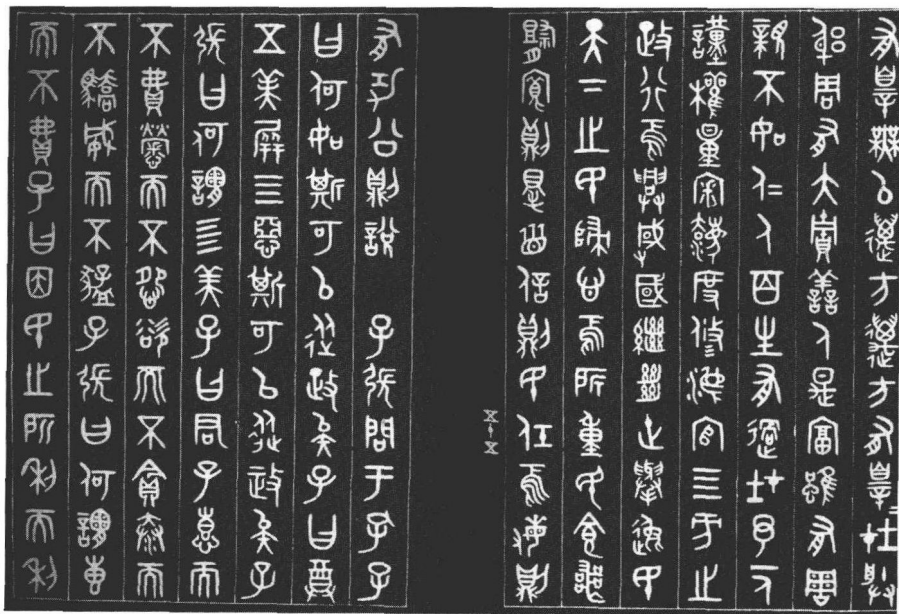 有辠無以萬方萬方有辠〻在朕
躬周有大賚善人是富雖有周
親不如仁人百生有過在予一人
謹權量審灋度修廢官亖方之
政行焉興滅國繼絕世舉逸民
天下之民歸心焉所重民食喪
祭寬則得眾信則民任焉敏則
五十五
有功公則說 子張問于孔子
曰何如斯可以從政矣子曰尊
五美屏亖惡斯可以從政矣子
張曰何謂五美子曰君子惠而
不費勞而不怨欲而不貪泰而
不驕威而不猛子張曰何謂惠
而不費子曰因民之所利而利